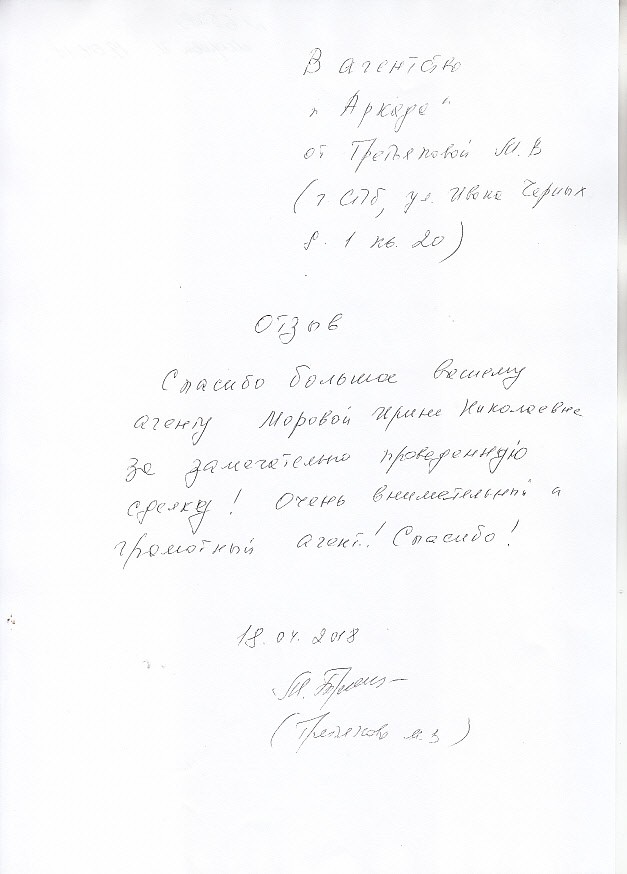 В агентство
„Аркада"
от Третьяковой М.В
(г СПб, ул. Ивана Черных
д. 1 кв. 20)
Отзыв
Спасибо большое вашему
агенту Моровой Ирине Николаевне
за замечательно проведенную
сделку! Очень внимательный и
грамотный агент! Спасибо!
18.04.2018
(Третьякова М.В)